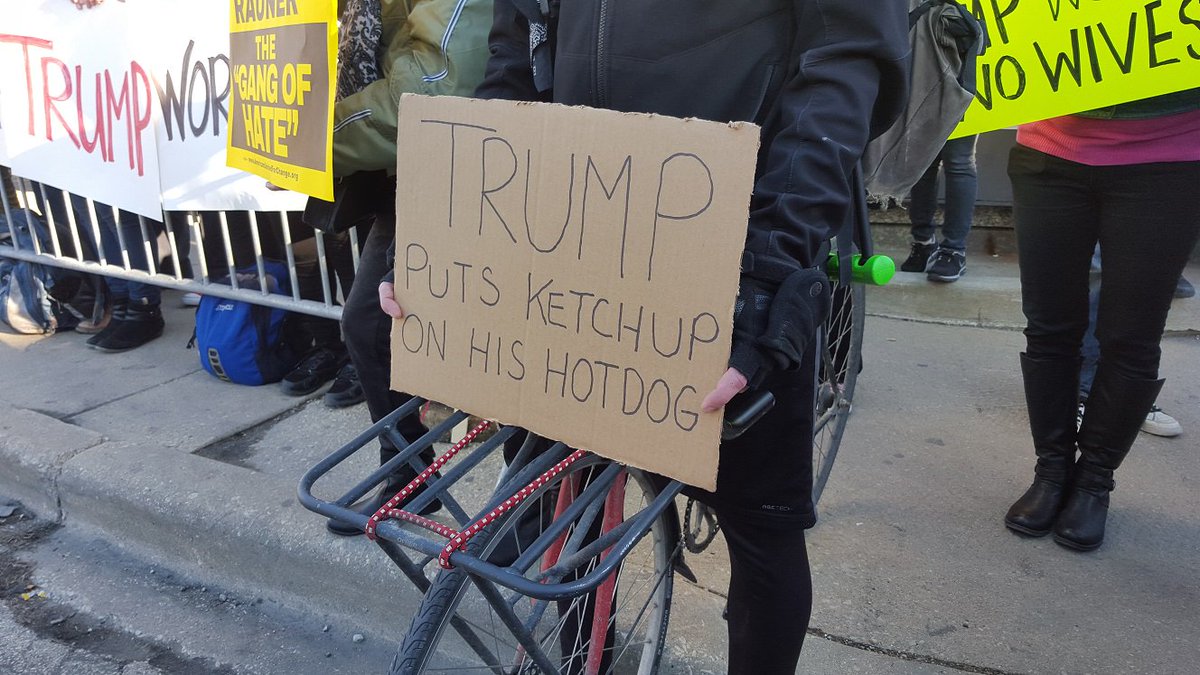 TRUMP WOR
RAUNER
THE
"GANG OF
HATE"
TRUMP
PUTS KETCHUP
ON HIS HOTDOG
NO WIVES